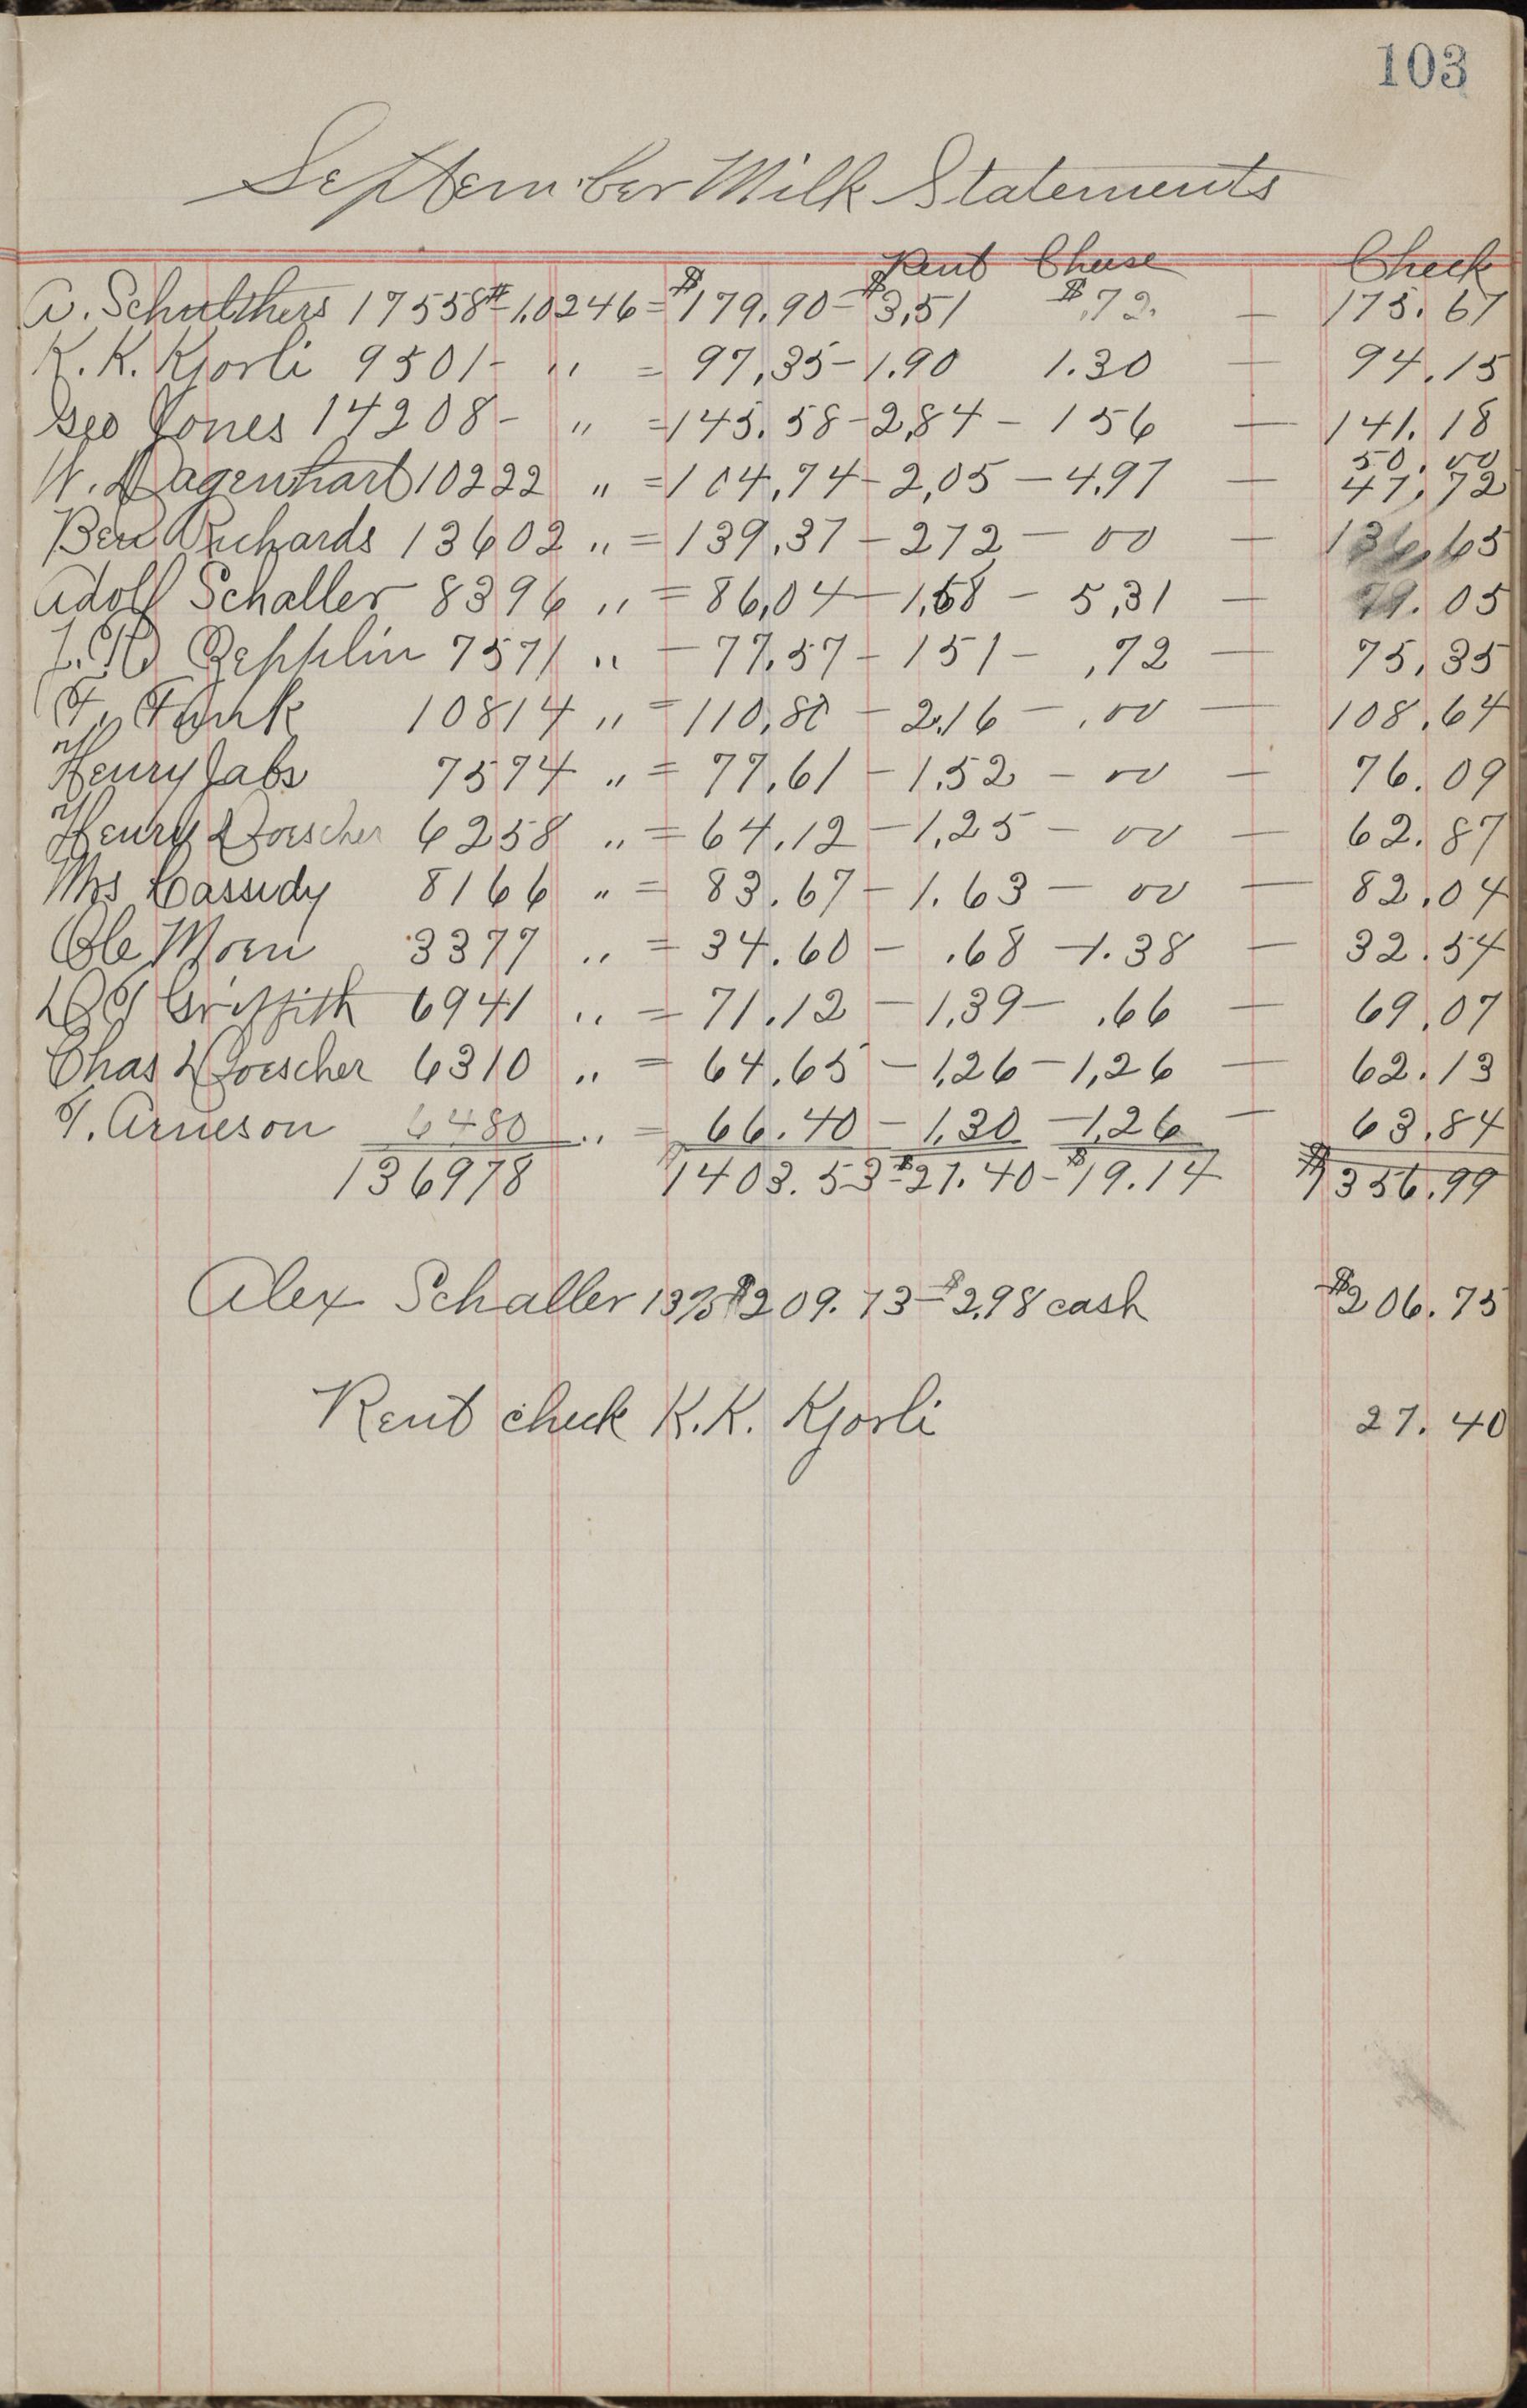 103
September Milk Statements
Rent Cheese Check
A. Schulthers 17558# - 1.0246 = $179.90 - $3,51 $.72. — 175.67
K. K. Kjorli 9501 - " = 97,35 - 1.90 1.30 — 94.15
Geo Jones 14208 - " = 145.58 - 2,84 - 156 — 141.18
50.00
W. Dagenhart 10222 " = 104,74 - 2,05 - 4,97 — 47,72
Ben Richards 13602 " = 139,37 - 272 - 00 — 136,65
Adolf Schaller 8396 " = 86,04 - 1,68 - 5,31 — 79.05
Zepplin 7571 " - 77.57 - 151 - ,72 — 75,35
F. Funk 10814 " = 110,80 - 2,16 - .00 — 108.64
Henry Jabs 7574 " = 77,61 - 1,52 - 00 — 76.09
Henry Doescher 6258 " = 64.12 - 1,25 - 00 — 62.87
Mrs Cassidy 8166 " = 83.67 - 1.63 - 00 — 82.04
Ole Moen 3377 " = 34.60 - .68 - 1.38 — 32.54
D T Griffith 6941 " = 71.12 - 1,39 - .66 — 69.07
Chas Doescher 6310 " = 64.65 - 1,26 - 1,26 — 62.13
T. Arneson 6480 " = 66.40 - 1,30 - 1,26 — 63.84
136978 1403.53 - $27.40 - $19.14 $1356.99
Alex Schaller 13% $209.73 - $2.98 cash $206.75
Rent check K.K. Kjorli 27.40